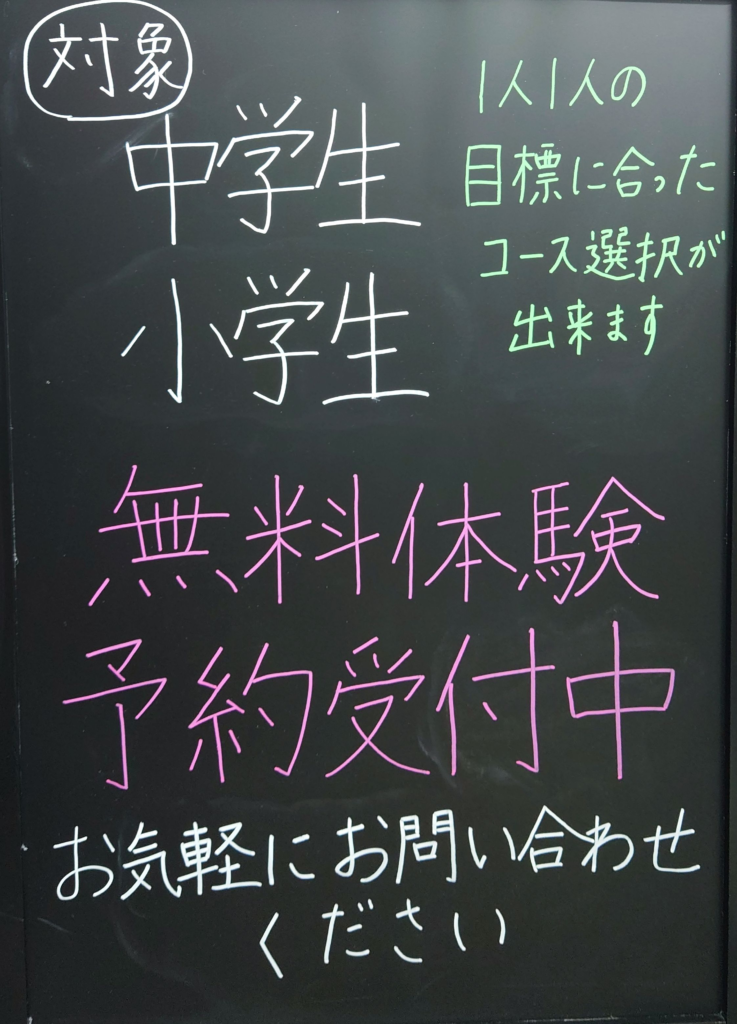 対象
中学生
小学生
1人1人の
目標に合った
コース選択が
出来ます
無料体験
予約受付中
お気軽にお問い合わせ
ください